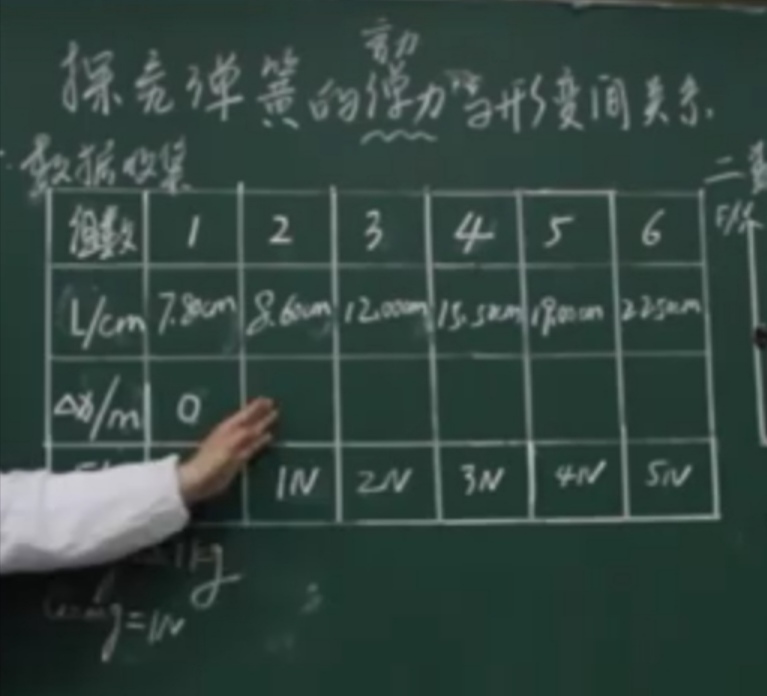 弹力
探究弹簧的弹力与形变间关系.
数据收集
二
组数 1 2 3 4 5 6
L/cm 7.80cm 8.60cm 12.00cm 15.50cm 19.00cm 22.50cm
Δx/m 0
1N 2N 3N 4N 5N
1kg
g=1N